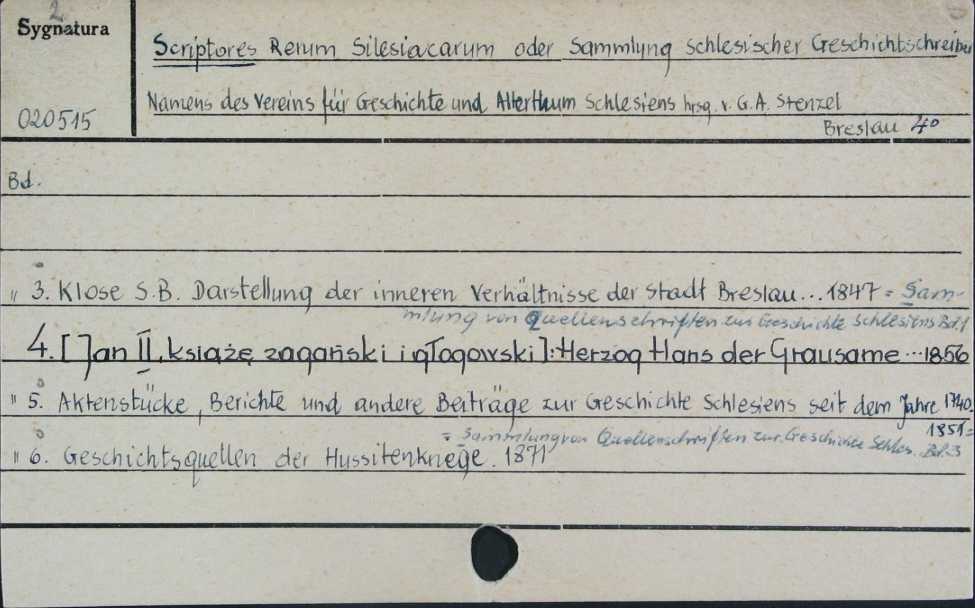 2
Sygnatura
020515
Scriptores Rerum Silesiacarum oder Sammlung Schlesischer Geschichtschreiber
Namens des Vereins für Geschichte und Alterthum Schlesiens hrsg. v. G.A. Stenzel
Breslau 4°
Bd.
" 3. Klose S.B. Darstellung der inneren Verhältnisse der Stadt Breslau... 1847 = Sam-
mlung von Quellenschriften zur Geschichte Schlesiens Bd.1
4. [Jan II, książę żagański i głogowski]: Herzog Hans der Grausame ... 1856
" 5. Aktenstücke, Berichte und andere Beiträge zur Geschichte Schlesiens seit dem Jahre 1740.
1851=
= Sammlung von Quellenschriften zur Geschichte Schles. Bd.3
" 6. Geschichtsquellen der Hussitenkriege. 1871